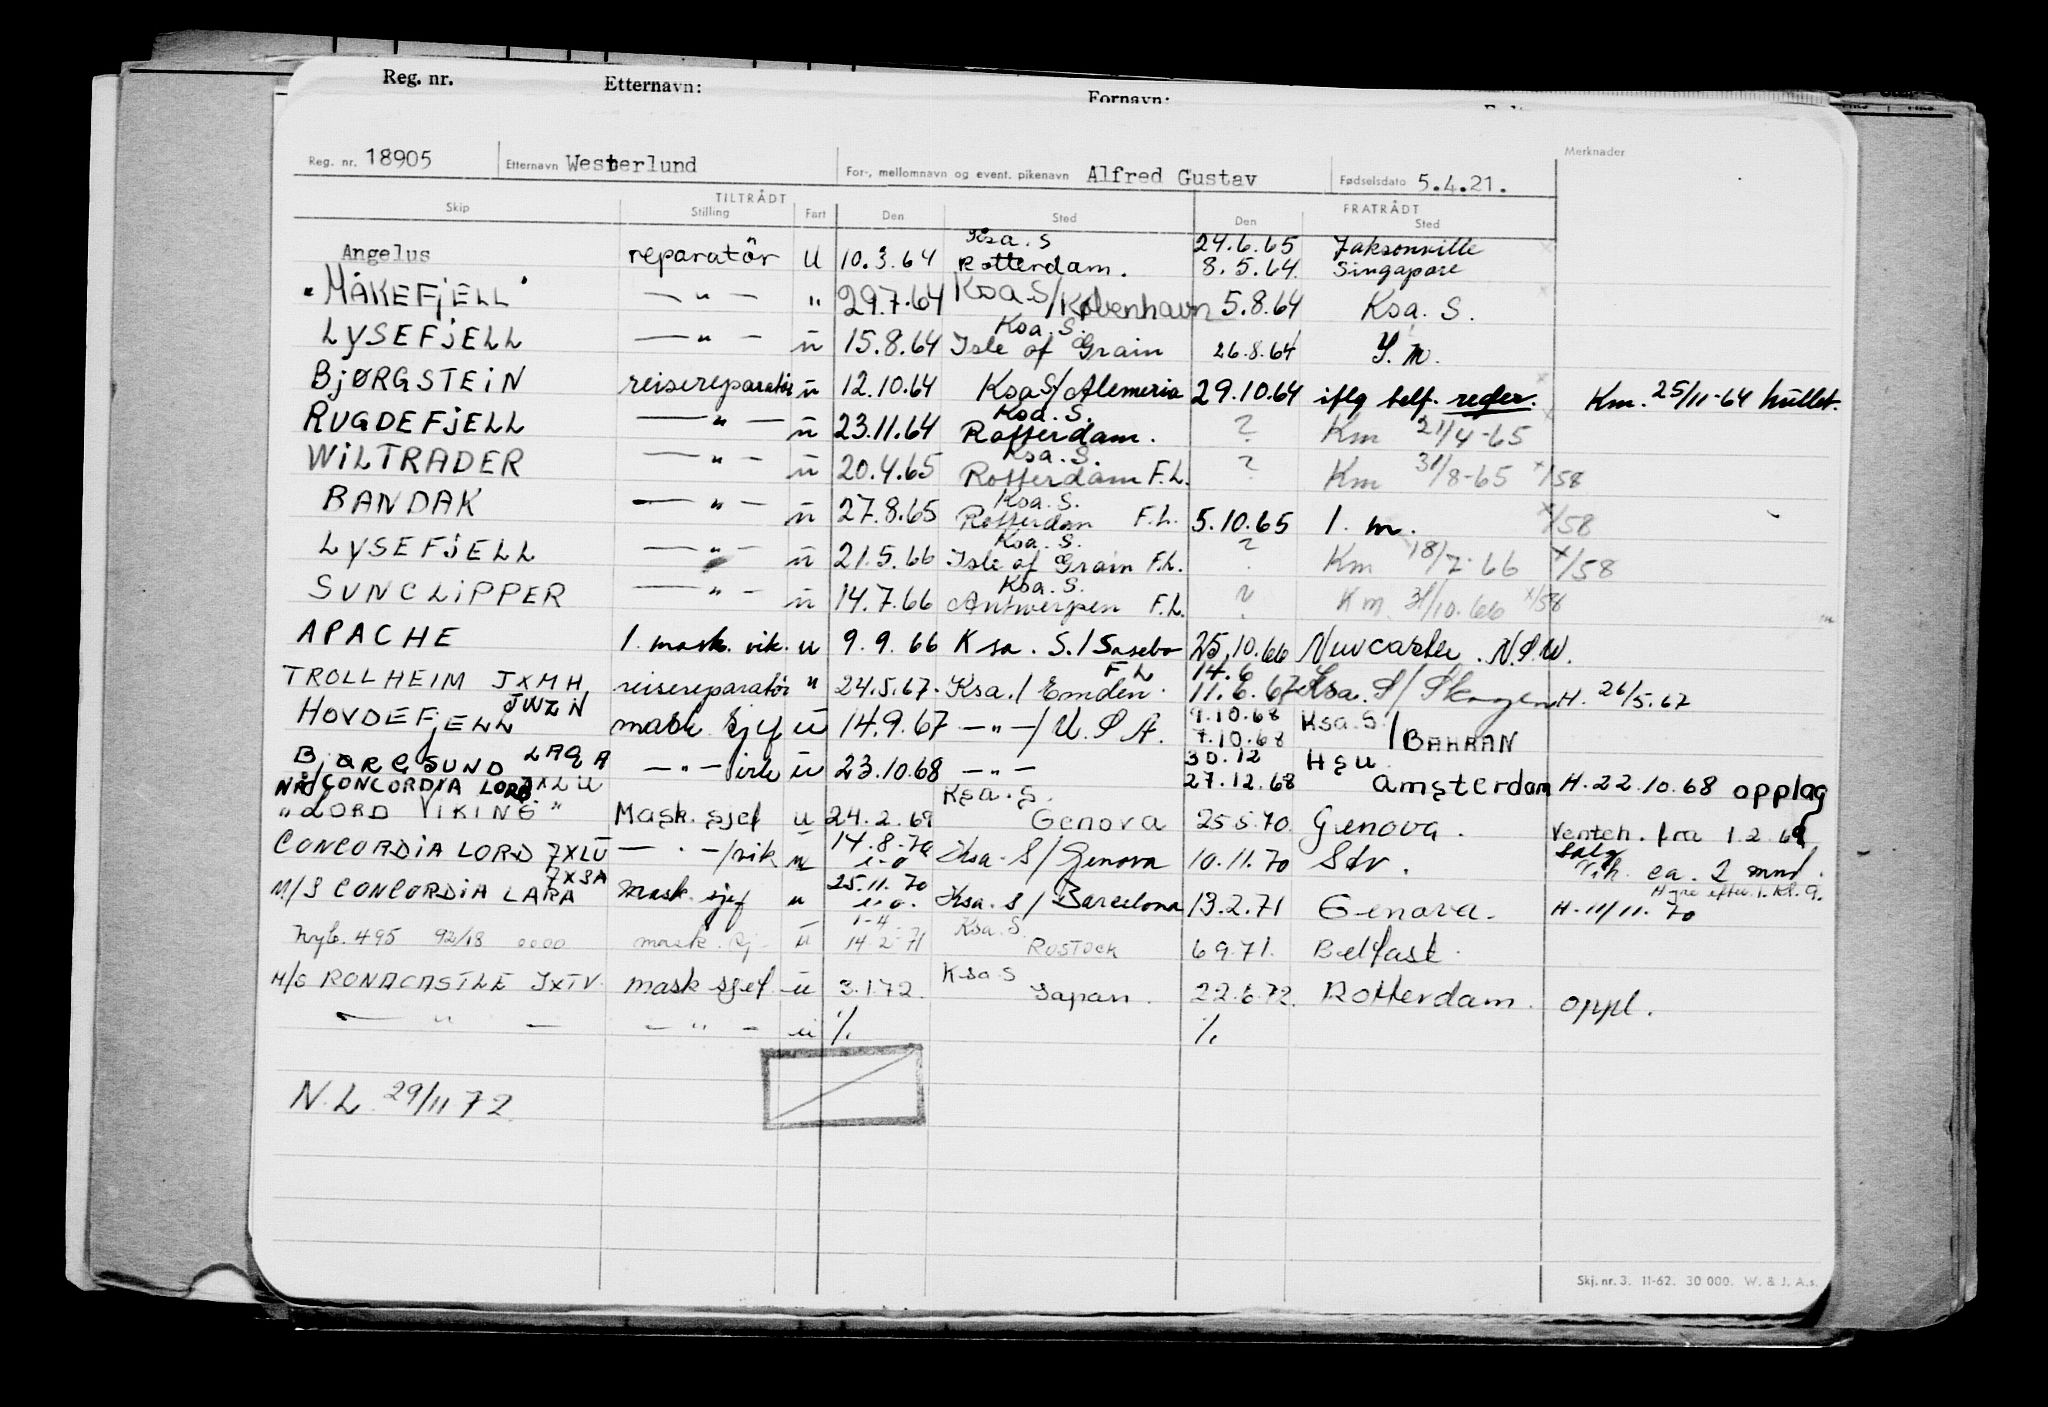 Reg. nr. Etternavn: Fornavn:
Reg. nr. 18905 Etternavn Westerlund For-, mellomnavn og event. pikenavn Alfred Gustav Fødselsdato 5.4.21. Merknader
TILTRÅDT FRATRÅDT
Skip Stilling Fart Den Sted Den Sted
Ksa. S 24.6.65 Jaksonville
Angelus reparatör U 10.3.64 Rotterdam. 8.5.64. Singapore
"MÅKEFJELL" — " — " 29.7.64 Ksa S/København 5.8.64 Ksa. S.
Ksa. S.
LYSEFJELL — " — ū 15.8.64 Isle of Grain 26.8.64
BJØRGSTEIN reisereparatör ū 12.10.64 Ksa S/Alemeria 29.10.64 iflg telf. reder. Km. 25/11-64
Ksa. S.
RUGDEFJELL — " — ū 23.11.64 Rotterdam. ? Km 21/4-65
Ksa. S.
WILTRADER — " — ū 20.4.65 Rotterdam F.L. ? Km 31/8-65 x/58
Ksa. S.
BANDAK — " — ū 27.8.65 Rotterdam F.L. 5.10.65 1. m. x/58
Ksa. S.
LYSEFJELL — " — ū 21.5.66 Isle of Grain F.L. ? Km 18/7-66 x/58
Ksa. S.
SUNCLIPPER — " — ū 14.7.66 Antwerpen F.L. ? Km 31/10.66 x/58
APACHE 1. mask. vik. u 9.9.66 Ksa. S./Sasebo 25.10.66 Nuvcastle. N.S.W.
F L 14.6
TROLLHEIM JXMH reisereparatör " 24.5.67. Ksa./Emden. 11.6.67 Ksa. S/Skagen H. 26/5.67
JWZN 9.10.68 Ksa. S.
HOVDEFJELL mask. sjef ū 14.9.67 — " — / U.S.A. 7.10.68 /BAHRAN
BJØRGSUND LAQA — " — ū 23.10.68 — " — 30.12 HSU
NÅ/CONCORDIA LORD JXLU Ksa. S. 27.12.68 Amsterdam H. 22.10.68 opplag
"LORD VIKING" Mask. sjef u 24.2.69 Genova 25.5.70. Genova. Venteh. fra 1.2.69
14.8.70 Salg
CONCORDIA LORD JXLU — " — /vik u i-o Ksa. S/Genova 10.11.70 Sdv. ca. 2 mnd.
JXSA 25.11.70
M/S CONCORDIA LARA mask. sjef u i-o. Ksa. S/Barcelona 13.2.71 Genova. H. 11/11.70
1-4. Ksa. S.
Nyb. 495 92/18 0000 mask. sj ū 14.2.71 Rostock 6.9.71. Belfast.
Ksa S
M/S RONACASTLE JXTV mask sjef ū 3.1.72. Japan. 22.6.72. Rotterdam. oppl.
— " — — " — ū %. %.
N.L. 29/11 72
Skj. nr. 3. 11-62. 30 000. W. & J. A.s.